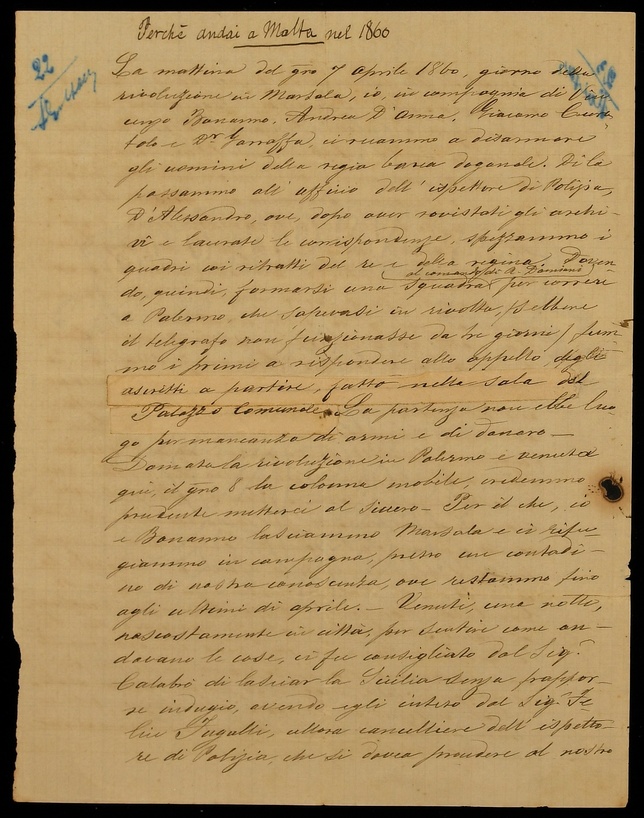 Perchè andai a Malta nel 1860
22
La mattina del gno 7 aprile 1860, giorno della
rivoluzione in Marsala, io, in compagnia di Vin
cenzo Bonanno, Andrea D'Anna, Giacomo Curà
tolo e Dr Garraffa, ci recammo a disarmare
gli uomini della regia barca doganale. Di là
passammo all'officio dell'ispettore di Polizia,
D'Alessandro, ove, dopo aver rovistati gli archi-
vi e lacerate le corrispondenze, spezzammo i
quadri coi ritratti del re e della regina. Doven
al comando di A. Damiani
do, quindi, formarsi una squadra per correre
a Palermo, che sapevasi in rivolta, (sebbene
il telegrafo non funzionasse da tre giorni) fum
mo i primi a rispondere allo appello degli
ascritti a partire, fatto nella sala del
Palazzo Comunale. La partenza non ebbe luo
go per mancanza di armi e di danaro —
Domata la rivoluzione in Palermo e venuta
qui, il gno 8 la colonna mobile, credemmo
prudente metterci al sicuro — Per il che, io
e Bonanno lasciammo Marsala e ci rifu-
giammo in campagna, presso un contadi-
no di nostra conoscenza, ove restammo fino
agli ultimi di aprile. — Venuti, una notte,
nascostamente in città, per sentire come an-
davano le cose, ci fu consigliato dal Sigr
Calabrò di lasciar la Sicilia senza frappor-
re indugio, avendo egli inteso dal Sigr Fe
lice Fugalli, allora cancelliere dell'ispetto-
re di Polizia, che si dovea procedere al nostro